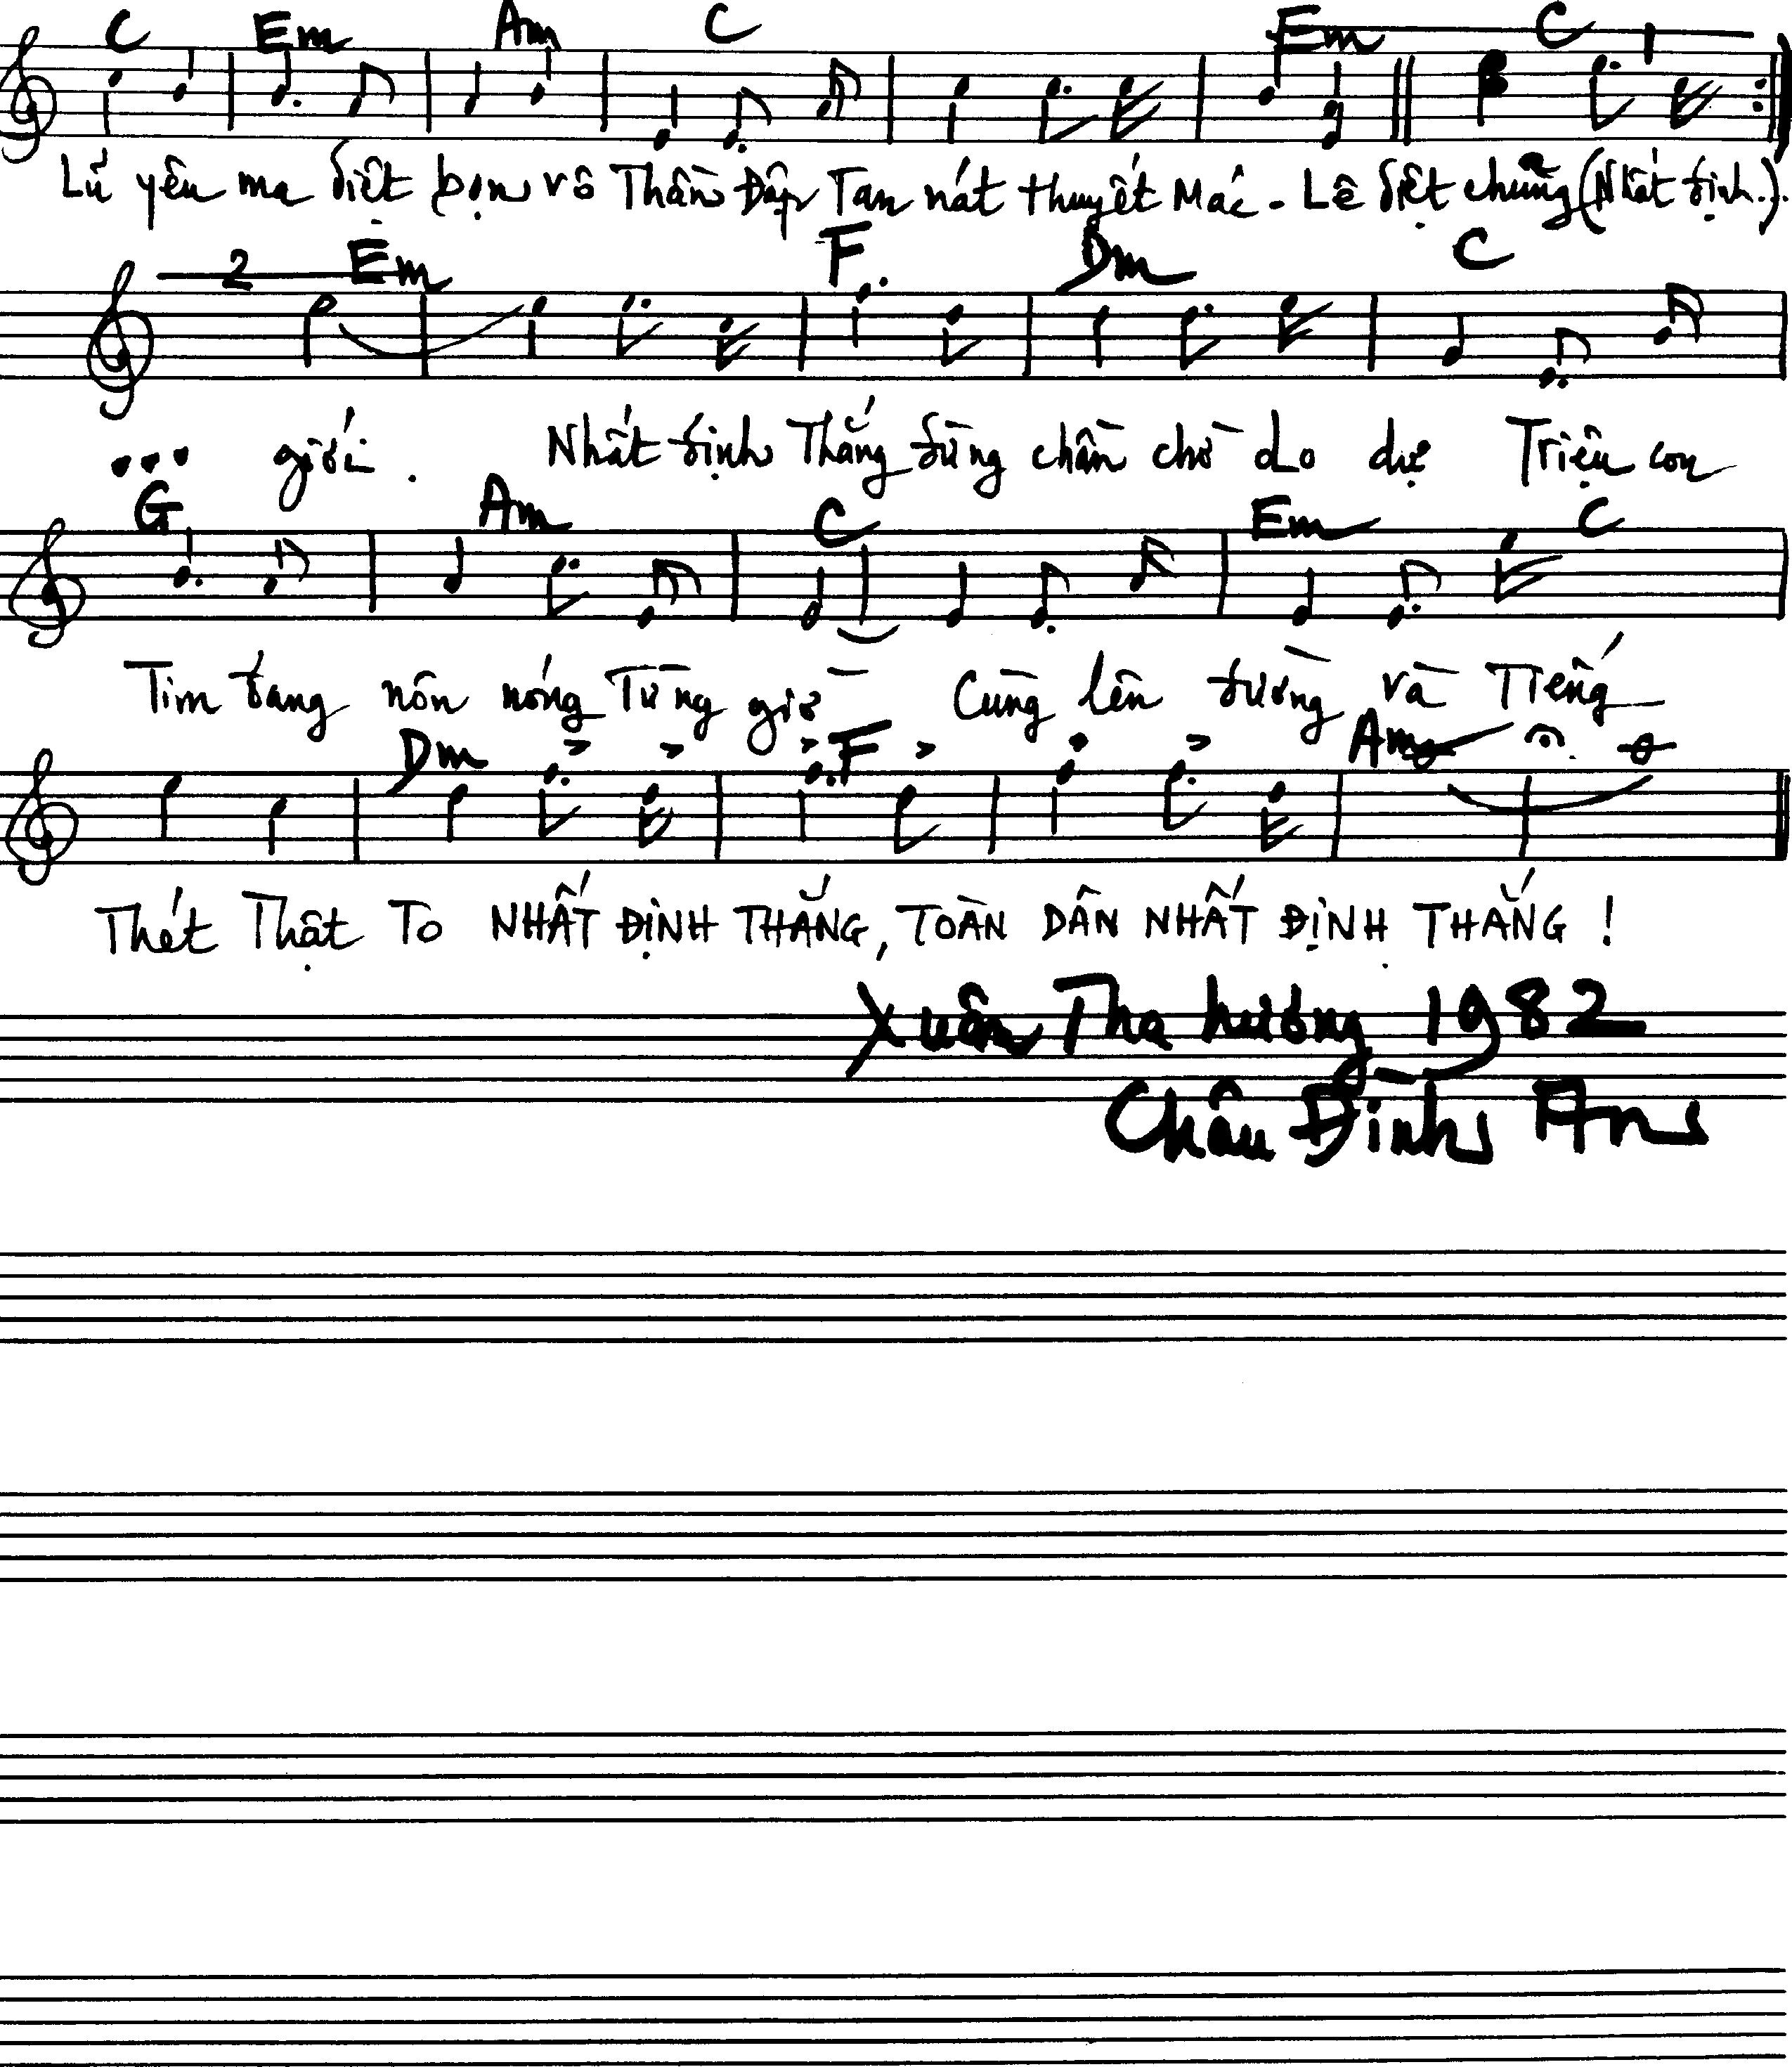 C Em Am C Em C 1
Lũ yêu ma diệt bọn vô Thần Đập Tan nát thuyết Mác - Lê diệt chủng (Nhất định..).
2 Em F. Dm C
... giới. Nhất định Thắng đừng chần chờ do dự Triệu con
G Am C Em C
Tim đang nôn nóng Từng giờ Cùng lên đường và Tiếng
Dm F Am
Thét Thật To NHẤT ĐỊNH THẮNG, TOÀN DÂN NHẤT ĐỊNH THẮNG !
Xuân Tha hương 1982
Châu Đình An